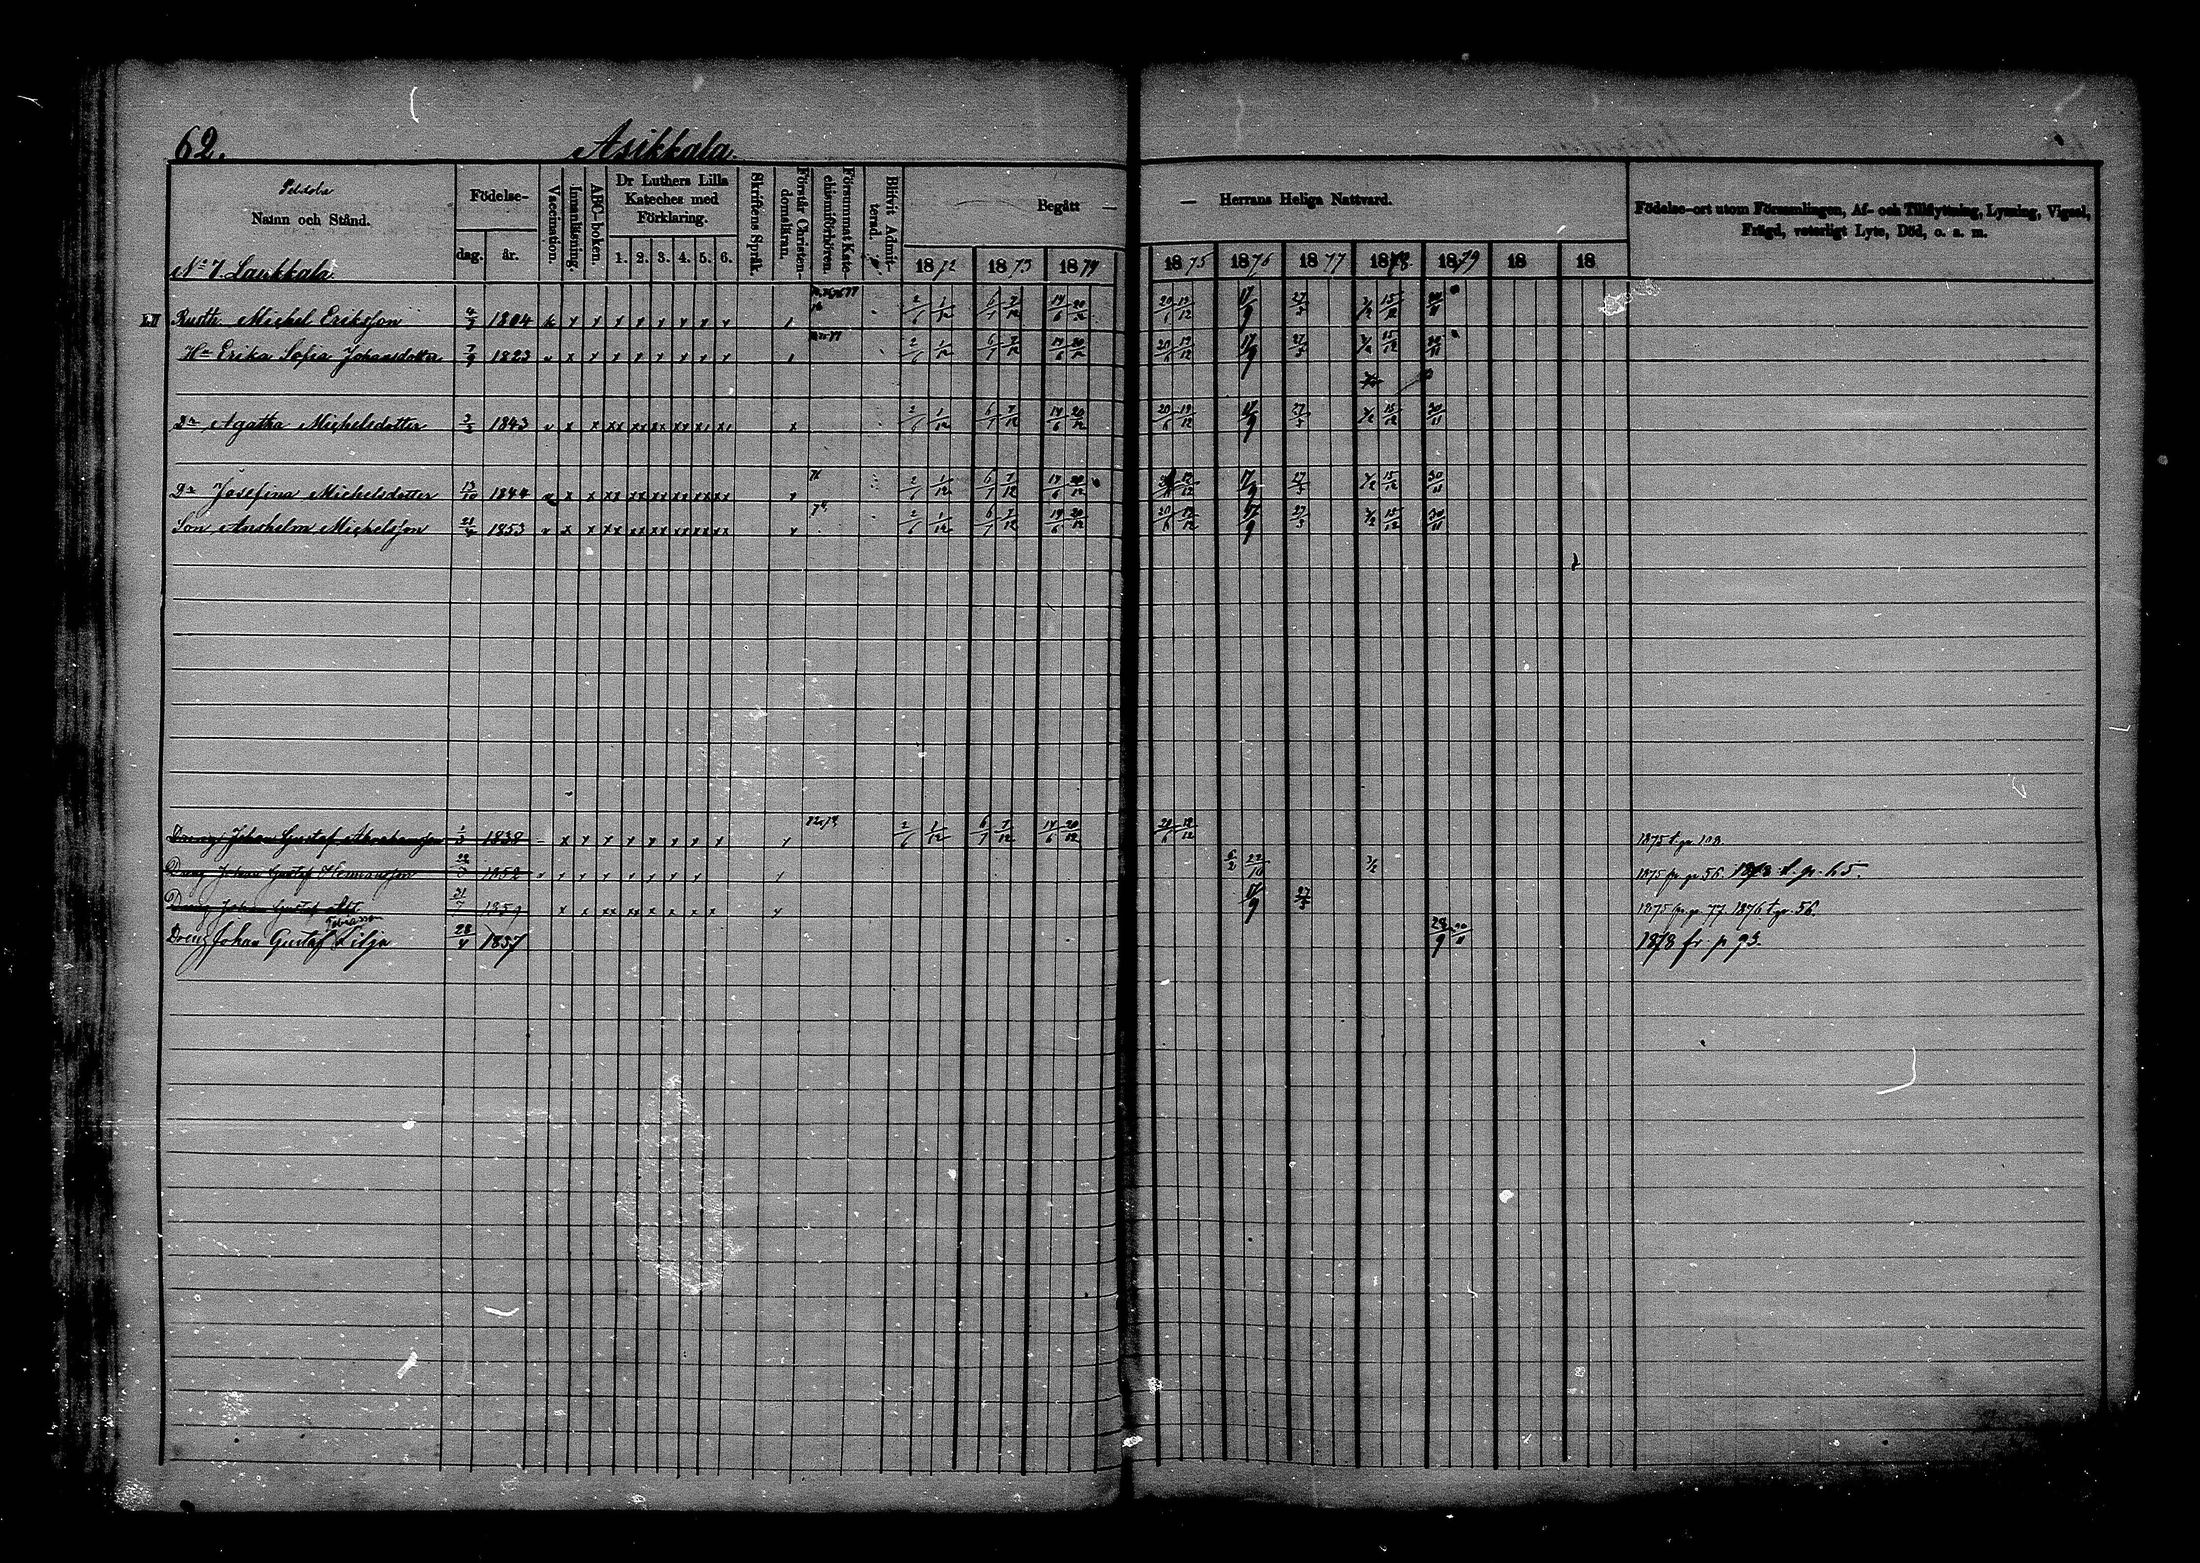 62. Asikkala.
Namn och Stånd.
Födelse-
dag. år.
Vaccination.
Innanläsning.
ABC-boken.
Dr Luthers Lilla Kateches med Förklaring.
1. 2. 3. 4. 5. 6.
Skriftens Språk.
Förstår Christendomsläran.
Försummat Katechismiförhören.
Blifvit Admitterad.
Begått — — Herrans Heliga Nattvard.
1872 1873 1874 1875 1876 1877 1878 1879 18 18
Födelse-ort utom Församlingen, Af- och Tillflyttning, Lysning, Vigsel,
Frägd, veterligt Lyte, Död, o. s. m.
No 7. Laukkala.
Michel Eriksson 1804 2/6 1/12 6/7 7/12 14/6 20/12 20/6 19/12 17/9 27/5 3/2 15/12 30/11
Hu Erika Sofia Johansdotter 7/9 1823 2/6 1/12 6/7 7/12 14/6 20/12 20/6 19/12 17/9 27/5 3/2 15/12 30/11
Dr Agatha Michelsdotter 1843 v x x xx xx xx xx xx xx x 2/6 1/12 6/7 7/12 14/6 20/12 20/6 19/12 17/9 27/5 3/2 15/12 30/11
Dr Josefina Michelsdotter 19/10 1844 2/6 1/12 6/7 7/12 14/6 20/12 19/12 17/9 27/5 3/2 15/12 30/11
Son Anshelm Michelsson 21/4 1853 2/6 1/12 6/7 7/12 14/6 20/12 20/6 19/12 17/9 27/5 3/2 15/12 30/11
Dreng Johan Gustaf Abrahamsson 1/3 1838 2/6 1/12 6/7 7/12 14/6 20/12 20/6 19/12 1875 t. pr 103.
Dreng Johan Gustaf 1852 22/10 3/2 1875 fr pr 56. 1878 t. pr. 65.
Dreng Johan Gustaf 21/7 17/9 27/5 1875 fr pr 77 1876 t pr 56.
Dreng Johan Gustaf Lilja 28/4 1857 1878 fr p 93.